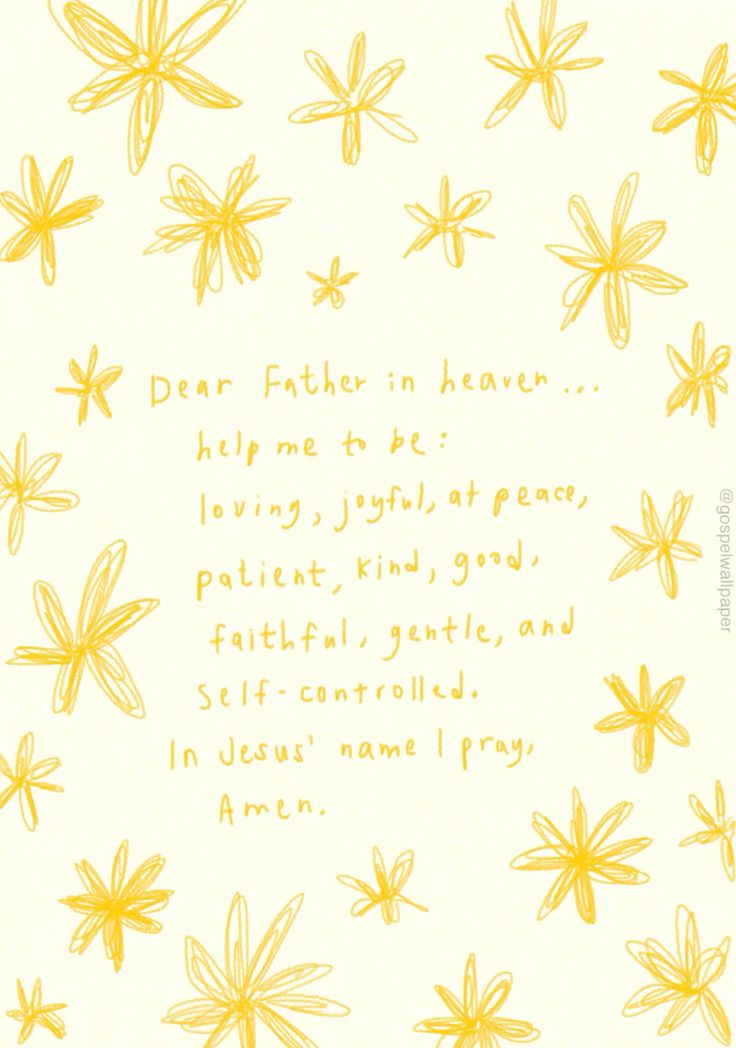 Dear Father in heaven...
help me to be:
loving, joyful, at peace,
patient, kind, good,
faithful, gentle, and
self-controlled.
In Jesus' name I pray,
Amen.
@gospelwallpaper